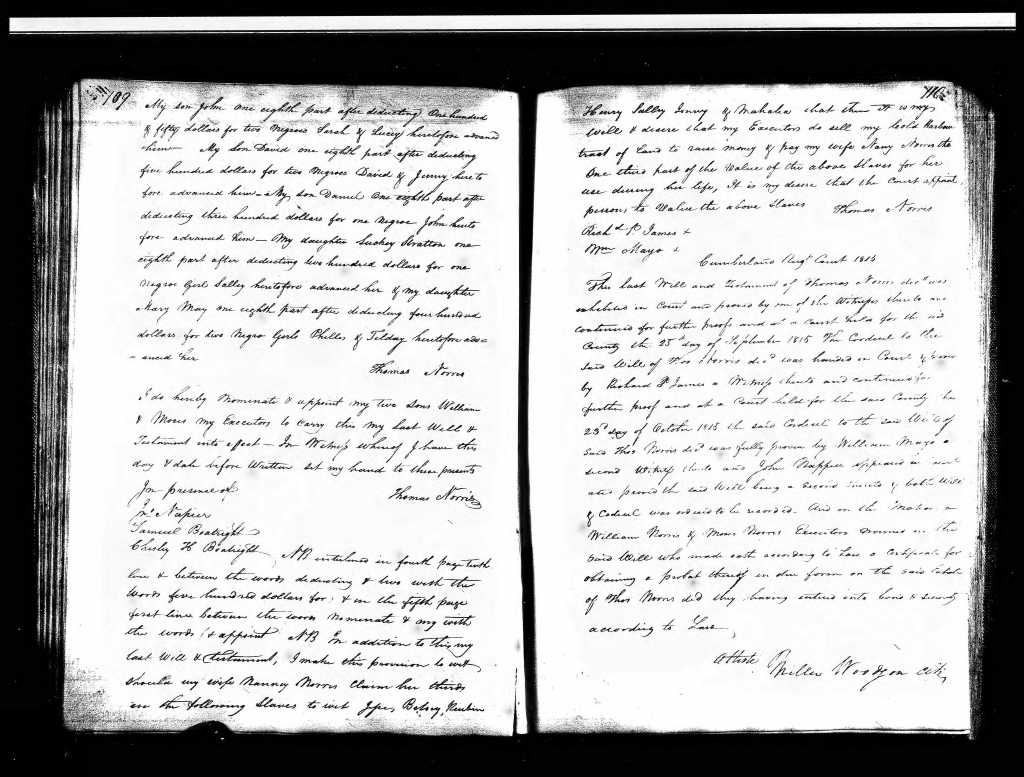 109
My son John one eighth part after deducting One hundred
& fifty dollars for two Negroes Sarah & Lucey heretofore advanced
him — My Son David one eighth part after deducting
five hundred dollars for two Negroes David & Jenny hereto
fore advanced him — My son Daniel One eighth part after
deducting three hundred dollars for one Negroe John hereto
fore advanced him — My daughter Suckey Bratton one
eighth part after deducting two hundred dollars for one
Negroe Girl Salley heretofore advanced her & my daughter
Mary May one eighth part after deducting four hundred
dollars for two Negro Girls Phillis & Tilday heretofore adv-
-anced her
Thomas Norris
I do hereby Nominate & appoint my two Sons William
& Moses my Executors to carry this my Last Will &
Testament into effect — In Witness whereof I have this
day & date before Written set my hand to these presents
In presence of
Thomas Norris
Jno Napier
Samuel Boatright
Chesly H Boatright
NB interlined in fourth page tenth
line & between the words deducting & two with the
words five hundred dollars for. & in the fifth page
first line between the words Nominate & my with
the words & appoint NB In addition to this my
last Will & testament, I make this provision to wit
should my wife Nanney Norris Claim her thirds
in the following Slaves to wit Betsey, Reuben
110
Henry Salley Jenny & Mahala that then it is my
Will & desire that my Executors do sell my
tract of Land to raise money & pay my wife Nany Norris the
One third part of the Value of the above Slaves for her
use during her life, It is my desire that the Court appoint
persons to Value the above Slaves
Thomas Norris
Richd P James +
Wm Mayo +
Cumberland Augt Court 1815
This last Will and Testament of Thomas Norris decd was
exhibited in Court and proved by one of the Witnesses thereto and
continued for further proof and at a Court held for the sd
County the 25th day of September 1815 The Codecil to the
said Will of Thos Norris decd was handed in Court & proven
by Richard P James a Witness thereto and continued for
further proof and at a Court held for the said County the
23d day of October 1815 the said Codecil to the said Will of
said Thos Norris decd was fully proven by William Mayo a
second Witness thereto and John Napier appeared in court
and proved the said Will being a second thereto & both Will
& Codecil was ordered to be recorded. And on the Motion of
William Norris & Moses Norris Executors in the
said Will who made oath according to Law a Certificate for
obtaining a probat thereof in due form on the said Estate
of Thos Norris decd they having entered into bond & security
according to Law
Atteste
Miller Woodson Clk